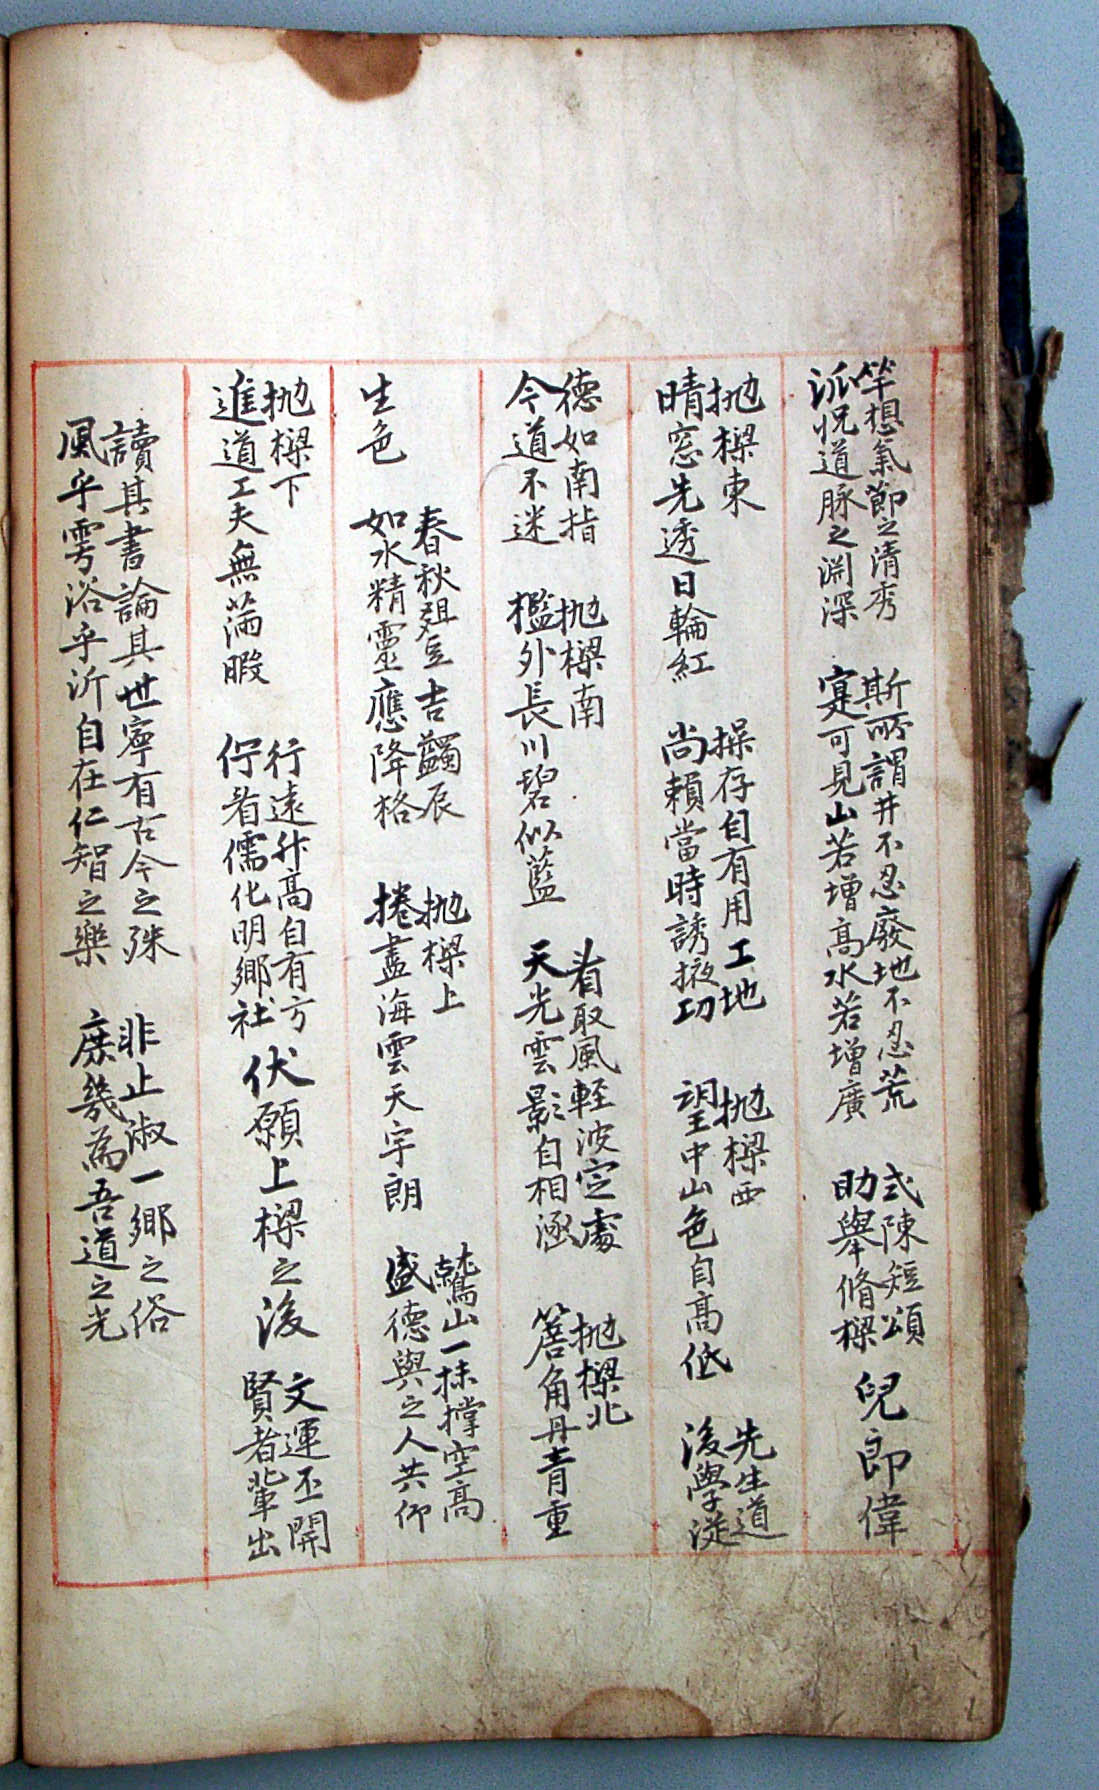 竿想氣節之清秀
派況道脉之淵深
斯所謂井不忍廢地不忍荒
寔可見山若增高水若增廣
式陳短頌
助擧脩樑
兒郎偉
抛樑東
晴窓先透日輪紅
操存自有用工地
尚賴當時誘掖功
抛樑西
望中山色自高低
先生道
後學從
德如南指
今道不迷
抛樑南
檻外長川碧似藍
看取風輕波定處
天光雲影自相涵
抛樑北
簷角丹青重
生色
春秋俎豆吉蠲辰
如水精靈應降格
抛樑上
捲盡海雲天宇朗
鷲山一抹撑空高
盛德與之人共仰
抛樑下
進道工夫無暇
行遠升高自有方
佇看儒化明鄉社
伏願上樑之後
文運丕開
賢者輩出
讀其書論其世寧有古今之殊
風乎雩浴乎沂自在仁智之樂
非止淑一鄉之俗
庶幾為吾道之光